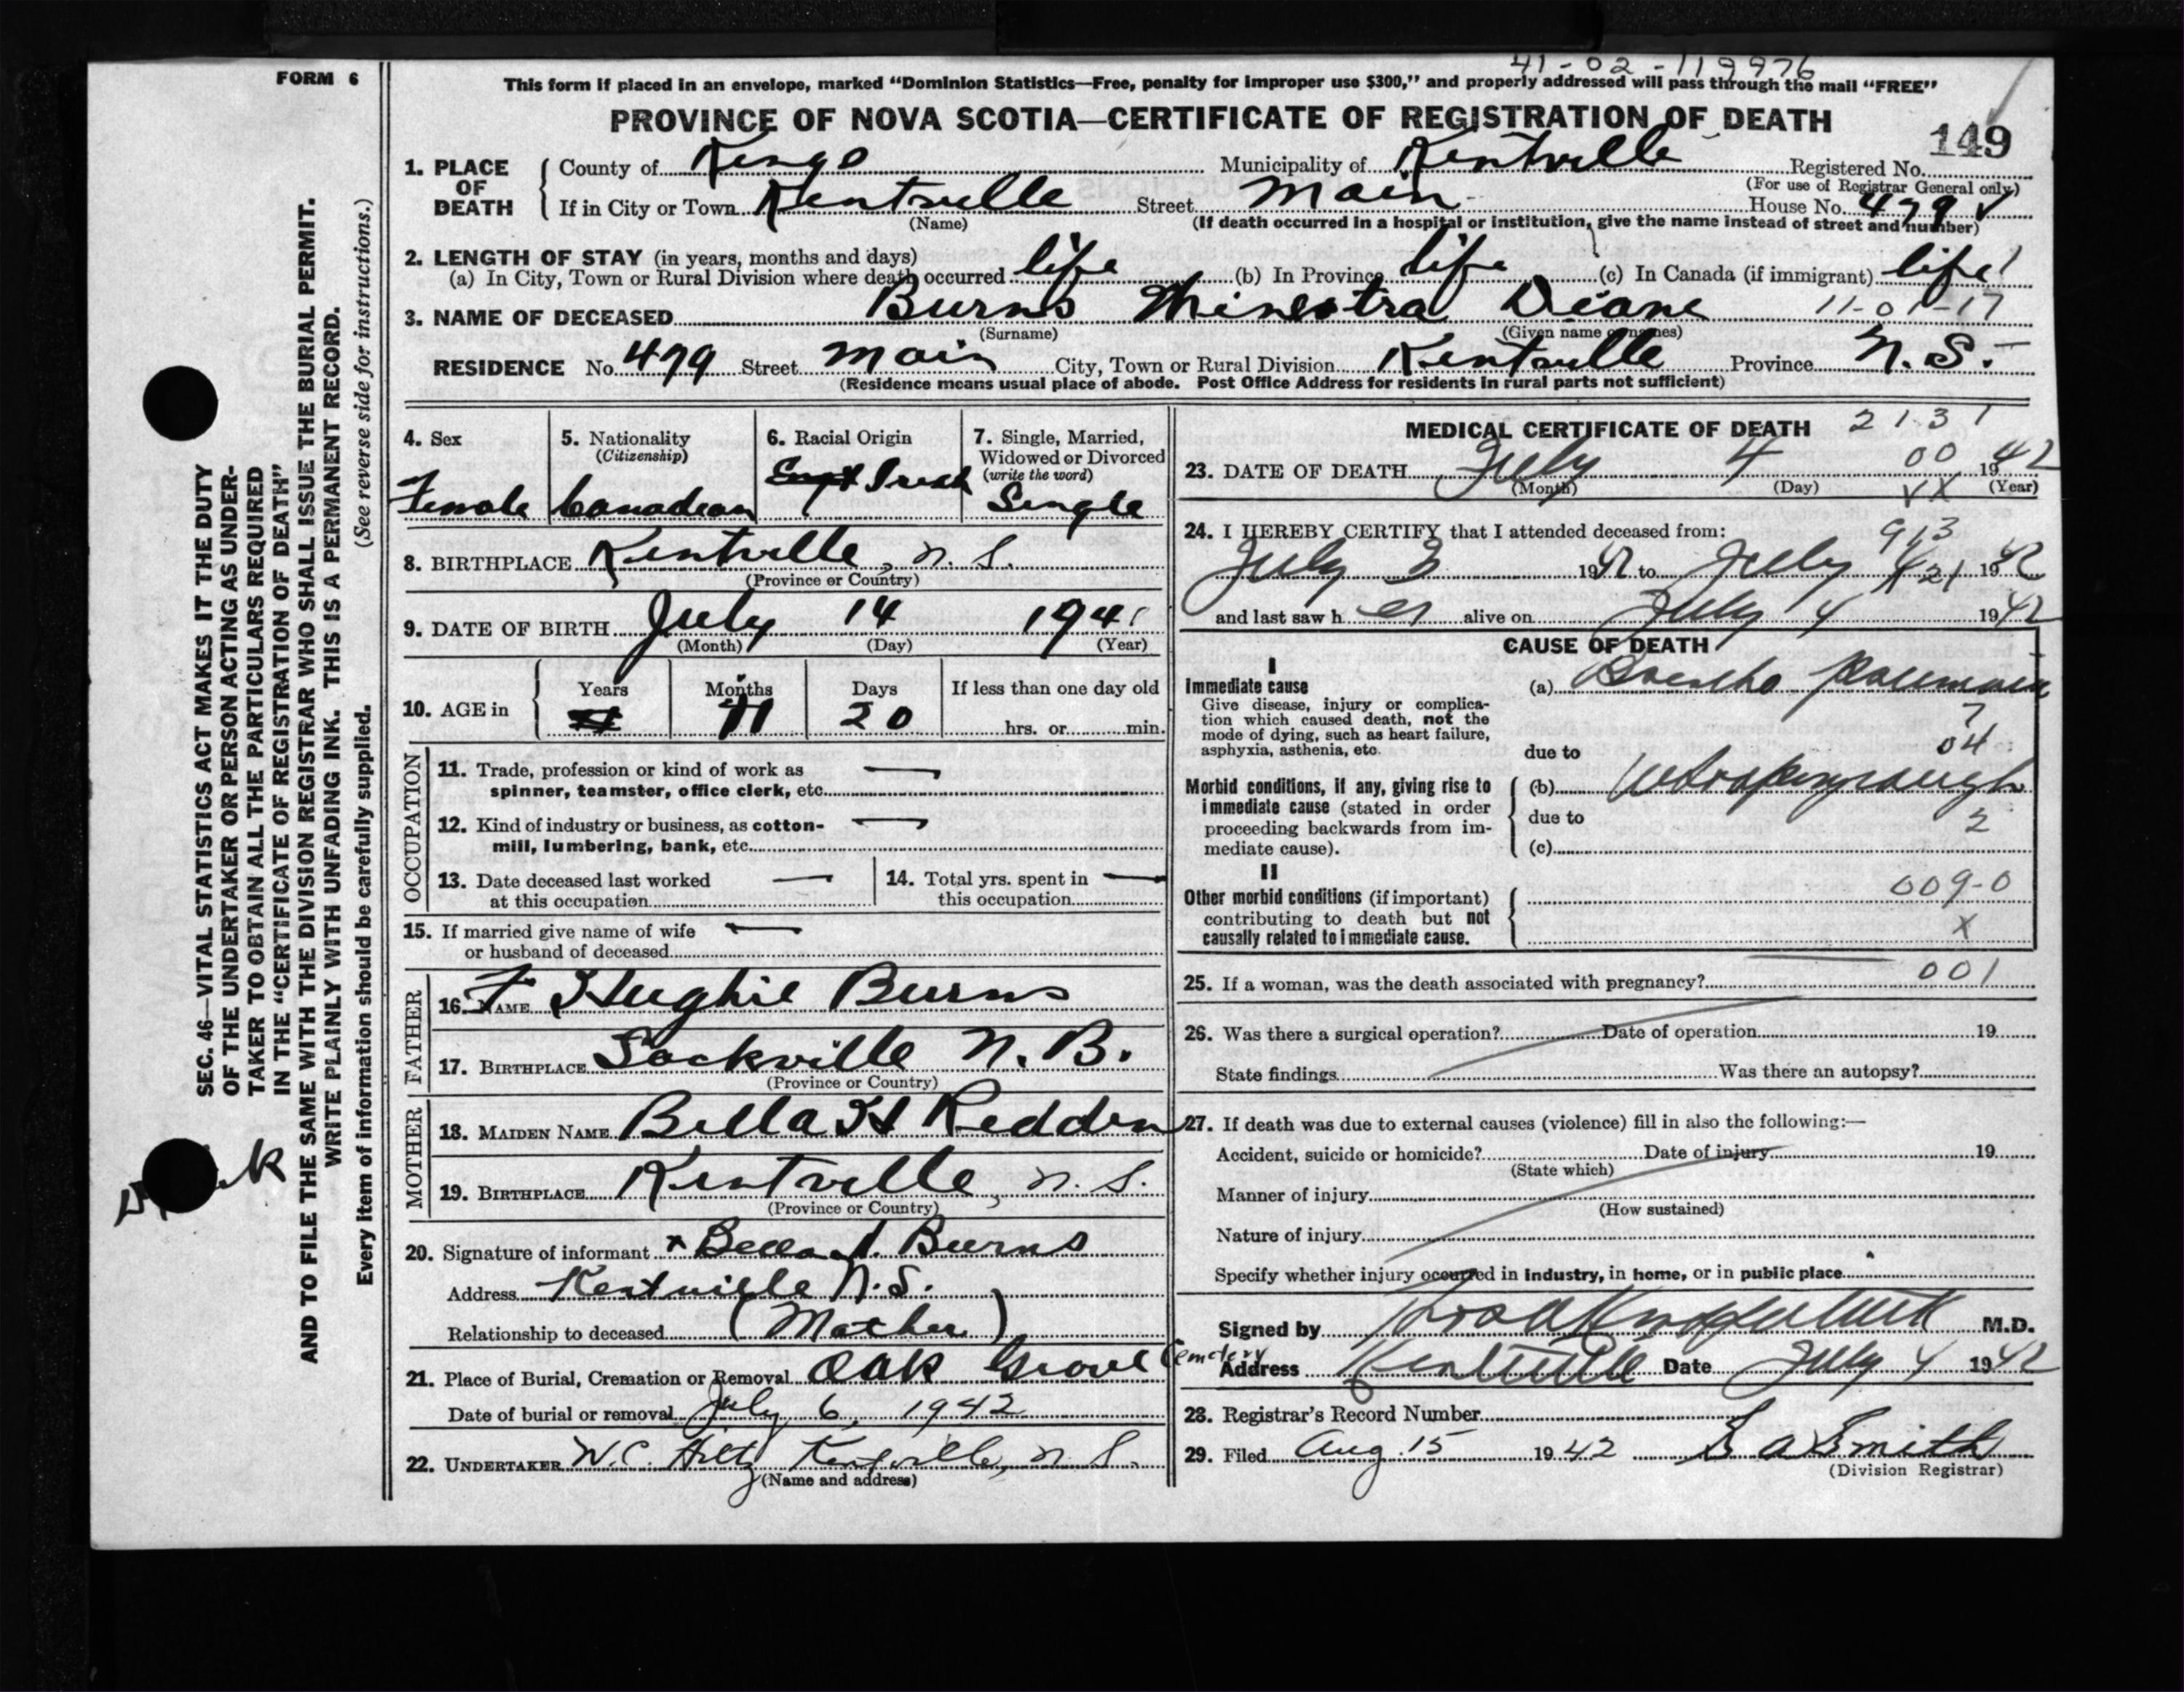 41-02-119976
FORM 6
This form if placed in an envelope, marked "Dominion Statistics—Free, penalty for improper use $300," and properly addressed will pass through the mail "FREE"
PROVINCE OF NOVA SCOTIA—CERTIFICATE OF REGISTRATION OF DEATH
149
1. PLACE OF DEATH
County of Kings Municipality of Kentville Registered No.
(For use of Registrar General only)
If in City or Town Kentville Street Main House No. 479
(Name) (If death occurred in a hospital or institution, give the name instead of street and number)
2. LENGTH OF STAY (in years, months and days)
(a) In City, Town or Rural Division where death occurred life (b) In Province life (c) In Canada (if immigrant) life
3. NAME OF DECEASED Burns Diane 11-01-17
(Surname) (Given name or names)
RESIDENCE No. 479 Street Main City, Town or Rural Division Kentville Province N.S.
(Residence means usual place of abode. Post Office Address for residents in rural parts not sufficient)
4. Sex Female
5. Nationality (Citizenship) Canadian
6. Racial Origin Irish
7. Single, Married, Widowed or Divorced (write the word) Single
8. BIRTHPLACE Kentville, N.S.
(Province or Country)
9. DATE OF BIRTH July 14 1941
(Month) (Day) (Year)
10. AGE in Years Months 11 Days 20 If less than one day old
hrs. or min.
OCCUPATION
11. Trade, profession or kind of work as spinner, teamster, office clerk, etc. —
12. Kind of industry or business, as cotton-mill, lumbering, bank, etc. —
13. Date deceased last worked at this occupation —
14. Total yrs. spent in this occupation —
15. If married give name of wife or husband of deceased —
FATHER
16. NAME F Hughie Burns
17. BIRTHPLACE Sackville N.B.
(Province or Country)
MOTHER
18. MAIDEN NAME Bella H Redden
19. BIRTHPLACE Kentville, N.S.
(Province or Country)
20. Signature of informant x Bella H. Burns
Address Kentville N.S.
Relationship to deceased (Mother)
21. Place of Burial, Cremation or Removal Oak Grove Cemetery
Date of burial or removal July 6, 1942
22. UNDERTAKER W.C. Hiltz Kentville, N.S.
(Name and address)
MEDICAL CERTIFICATE OF DEATH 2131
23. DATE OF DEATH July 4 00 1942
(Month) (Day) (Year)
VX
24. I HEREBY CERTIFY that I attended deceased from:
913
July 3 1942 to July 4 21 1942
and last saw her alive on July 4 1942
CAUSE OF DEATH
I
Immediate cause
Give disease, injury or complication which caused death, not the mode of dying, such as heart failure, asphyxia, asthenia, etc.
(a) Broncho Pneumonia
7
due to 04
Morbid conditions, if any, giving rise to immediate cause (stated in order proceeding backwards from immediate cause).
(b) Whooping cough
due to 2
(c)
II
Other morbid conditions (if important) contributing to death but not causally related to immediate cause.
009-0
X
25. If a woman, was the death associated with pregnancy? 001
26. Was there a surgical operation? Date of operation 19
State findings Was there an autopsy?
27. If death was due to external causes (violence) fill in also the following:—
Accident, suicide or homicide? Date of injury 19
(State which)
Manner of injury
(How sustained)
Nature of injury
Specify whether injury occurred in industry, in home, or in public place
Signed by M.D.
Address Kentville Date July 4 1942
28. Registrar's Record Number
29. Filed Aug. 15 1942 Smith
(Division Registrar)
SEC. 46—VITAL STATISTICS ACT MAKES IT THE DUTY
OF THE UNDERTAKER OR PERSON ACTING AS UNDER-
TAKER TO OBTAIN ALL THE PARTICULARS REQUIRED
IN THE "CERTIFICATE OF REGISTRATION OF DEATH"
AND TO FILE THE SAME WITH THE DIVISION REGISTRAR WHO SHALL ISSUE THE BURIAL PERMIT.
WRITE PLAINLY WITH UNFADING INK. THIS IS A PERMANENT RECORD.
Every item of information should be carefully supplied. (See reverse side for instructions.)